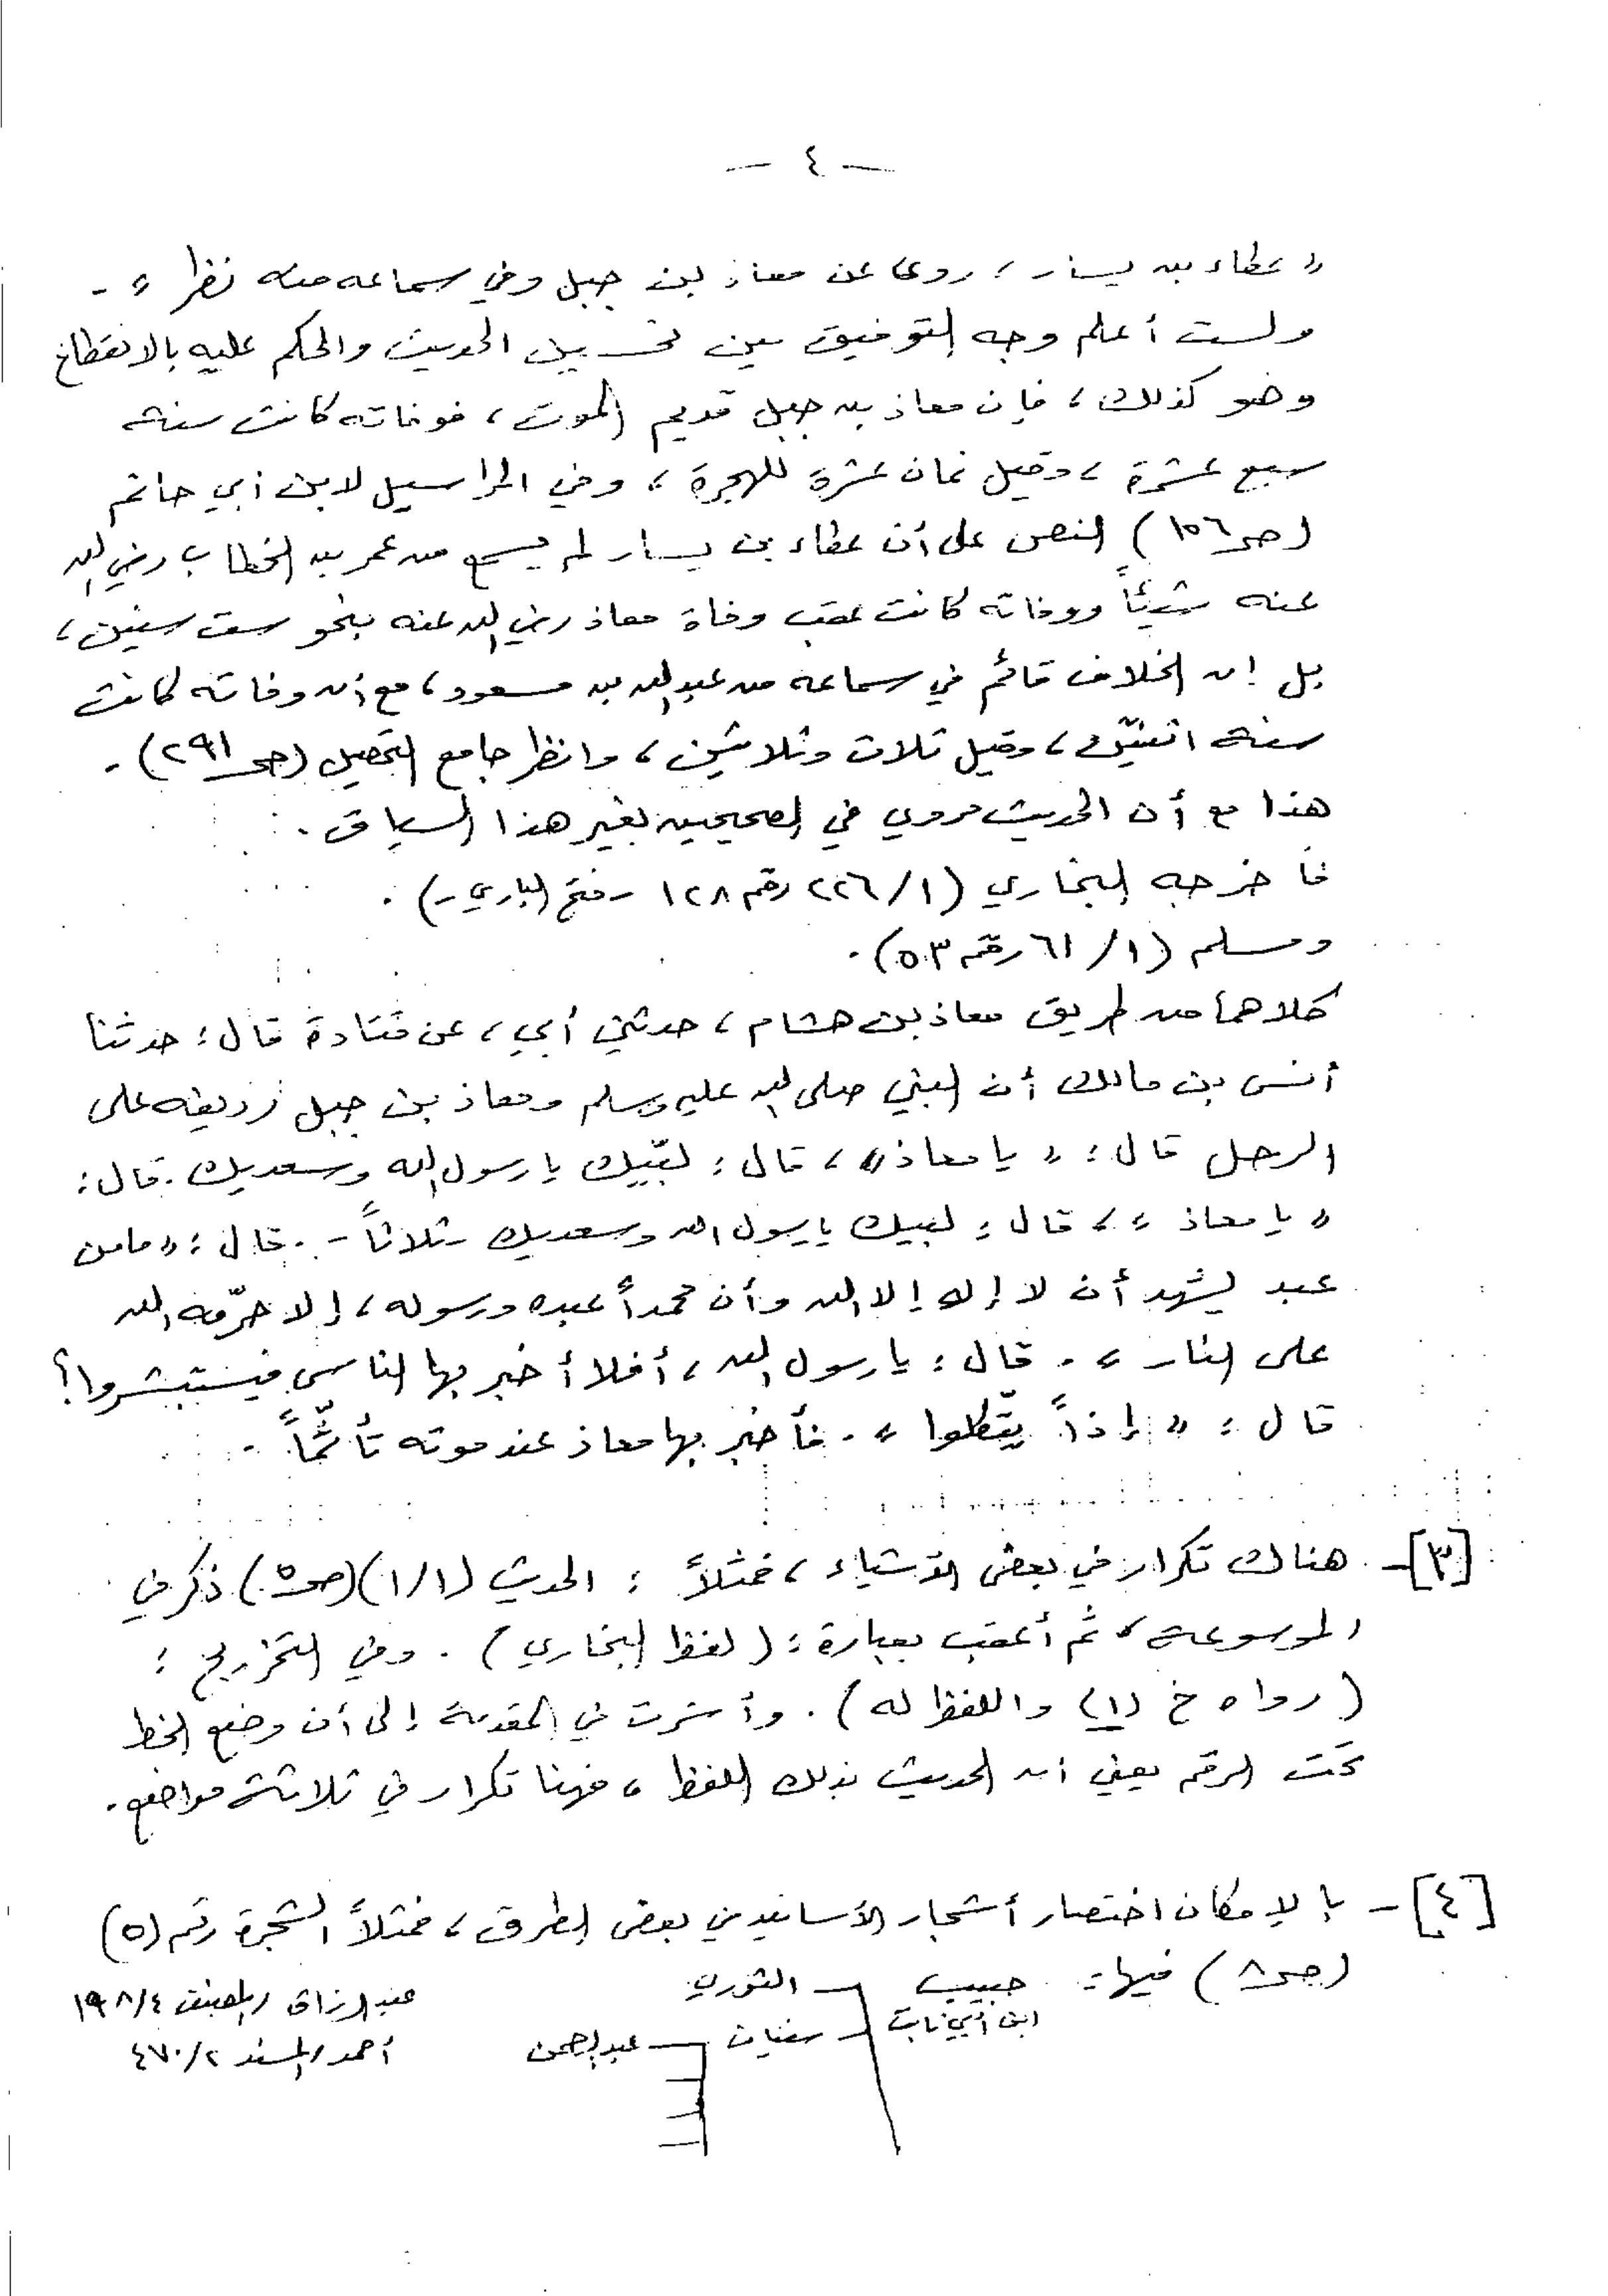 - ٤ -
« عطاء بن يسار ، روى عن معاذ بن جبل وفي سماعه منه نظر » .
ولست أعلم وجه التوفيق بين تحسين الحديث والحكم عليه بالانقطاع
وهو كذلك ، فإن معاذ بن جبل قديم الموت ، فوفاته كانت سنة
سبع عشرة ، وقيل ثمان عشرة للهجرة ، وفي المراسيل لابن أبي حاتم
(ص ١٥٦) النص على أن عطاء بن يسار لم يسمع من عمر بن الخطاب رضي الله
عنه شيئاً ووفاته كانت عقب وفاة معاذ رضي الله عنه بنحو ست سنين ،
بل إن الخلاف قائم في سماعه من عبد الله بن مسعود ، مع أن وفاته كانت
سنة اثنتين ، وقيل ثلاث وثلاثين ، وانظر جامع التحصيل (ص ٢٩١) .
هذا مع أن الحديث مروي في الصحيحين بغير هذا السياق .
فأخرجه البخاري (١/٢٢٦ رقم ١٢٨ - فتح الباري -) .
ومسلم (١/٦١ رقم ٥٣) .
كلاهما من طريق معاذ بن هشام ، حدثني أبي ، عن قتادة قال : حدثنا
أنس بن مالك أن النبي صلى الله عليه وسلم ومعاذ بن جبل رديفه على
الرحل قال : « يا معاذ » ، قال : لبّيك يا رسول الله وسعديك . قال :
« يا معاذ » ، قال : لبيك يا رسول الله وسعديك - ثلاثاً - . قال : « ما من
عبد يشهد أن لا إله إلا الله وأن محمداً عبده ورسوله ، إلا حرّمه الله
على النار » . قال : يا رسول الله ، أفلا أخبر بها الناس فيستبشروا ؟
قال : « إذاً يتّكلوا » . فأخبر بها معاذ عند موته تأثّماً .
[٣] - هناك تكرار في بعض الأشياء ، فمثلاً : الحديث (١/١) (ص ٥) ذكر في
الموسوعة ، ثم أعقب بعبارة : (لفظ البخاري) . وفي التخريج :
(رواه خ (١) واللفظ له) . وأشرت في المقدمة إلى أن وضع الخط
تحت الرقم يعني أن الحديث بذلك اللفظ ، فهنا تكرار في ثلاثة مواضع .
[٤] - بالإمكان اختصار أشجار الأسانيد في بعض الطرق ، فمثلاً الشجرة رقم (٥)
(ص ٨) فيها : حبيب الثوري عبد الرزاق / المصنف ١٩٨/٤
ابن أبي ثابت سفيان عبد الرحمن أحمد / المسند ٤٧٠/٢